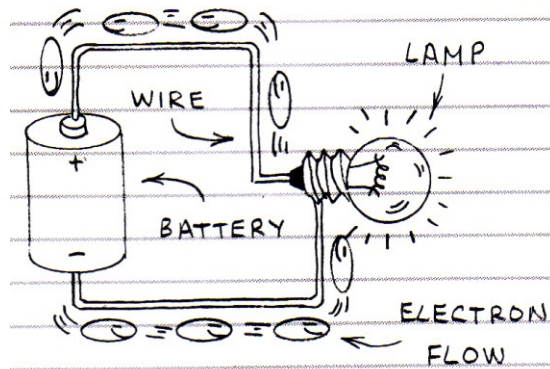 LAMP
WIRE
+
BATTERY
-
ELECTRON
FLOW